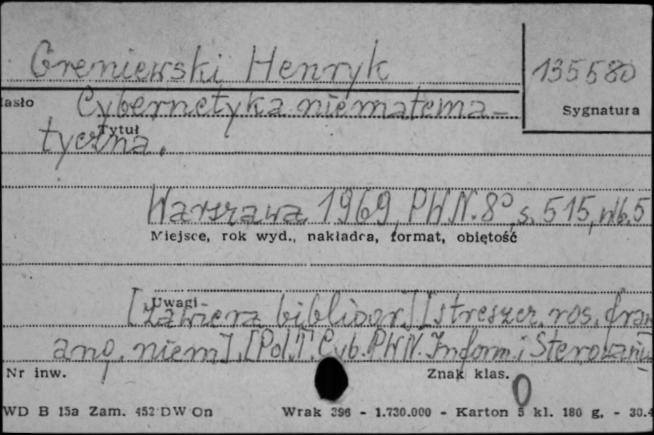 Greniewski Henryk
135580
asło
Cybernetyka niematema-
Sygnatura
Tytuł
tyczna.
Warszawa 1969, PWN. 8°, s. 515, nlb. 5
Miejsce, rok wyd., nakładca, format, objętość
Uwagi
[Zawiera bibliogr.] [streszcz. ros. fran
ang. niem]. [Pol. T. Cyb. PWN. Inform. i Sterowania
Nr inw.
Znak klas.
0
WD B 15a Zam. 452 DW On
Wrak 396 - 1.730.000 - Karton 5 kl. 180 g. - 30.4